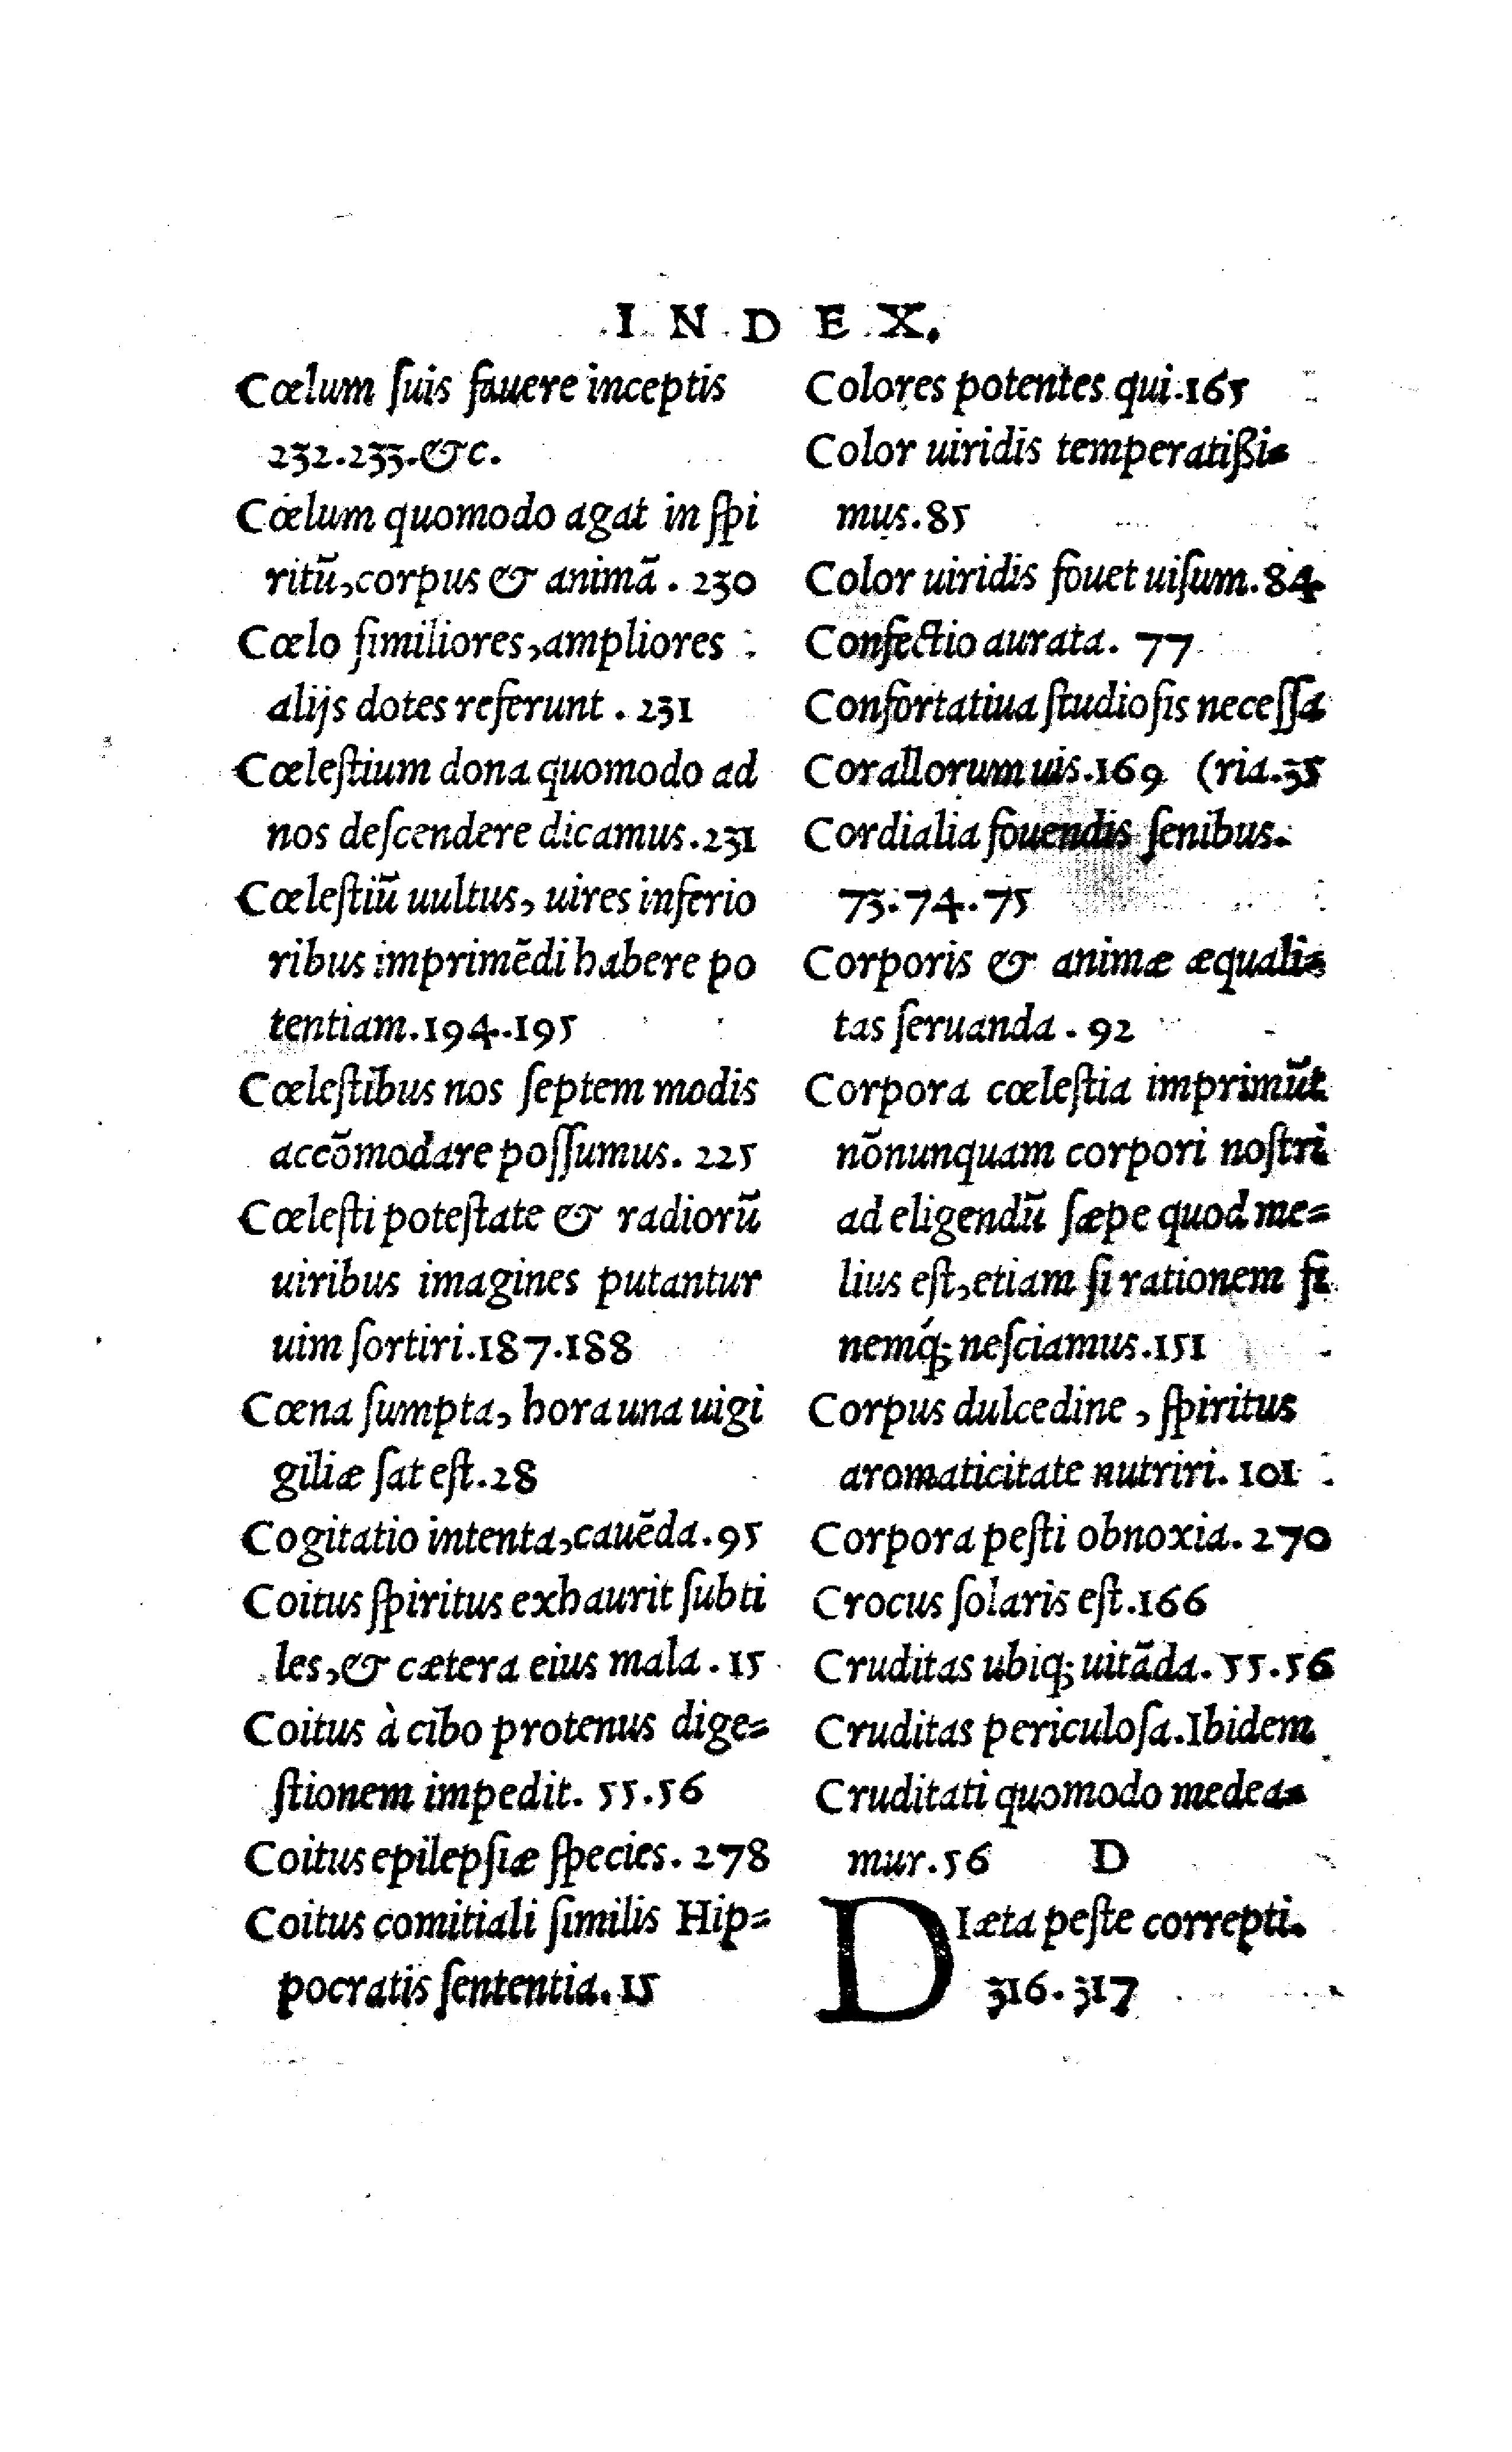 INDEX.
Cœlum ſuis fauere inceptis
232.233.&c.
Cœlum quomodo agat in ſpi
ritũ,corpus & animã . 230
Cœlo ſimiliores,ampliores
alijs dotes referunt . 231
Cœleſtium dona quomodo ad
nos deſcendere dicamus.231
Cœleſtiũ uultus, uires inferio
ribus imprimẽdi habere po
tentiam.194.195
Cœleſtibus nos ſeptem modis
accõmodare poſſumus. 225
Cœleſti poteſtate & radiorũ
uiribus imagines putantur
uim ſortiri.187.188
Cœna ſumpta, hora una uigi
giliæ ſat eſt.28
Cogitatio intenta,cauẽda.95
Coitus ſpiritus exhaurit ſubti
les,& cætera eius mala . 15
Coitus à cibo protenus dige=
ſtionem impedit. 55.56
Coitus epilepſiæ ſpecies. 278
Coitus comitiali ſimilis Hip=
pocratis ſententia.15
Colores potentes qui.165
Color uiridis temperatißi=
mus.85
Color uiridis fouet uiſum.84
Confectio aurata. 77
Confortatiua ſtudioſis neceſſa
Corallorum uis.169 (ria.35
Cordialia fouendis ſenibus.
73.74.75
Corporis & animæ æquali=
tas ſeruanda . 92
Corpora cœleſtia imprimũt
nõnunquam corpori noſtri
ad eligendũ ſæpe quod me=
lius eſt,etiam ſi rationem fi
nemq́; neſciamus.151
Corpus dulcedine , ſpiritus
aromaticitate nutriri. 101
Corpora peſti obnoxia. 270
Crocus ſolaris eſt.166
Cruditas ubiq; uitãda. 55.56
Cruditas periculoſa.Ibidem
Cruditati quomodo medea=
mur.56 D
DIæta peſte correpti.
316.317